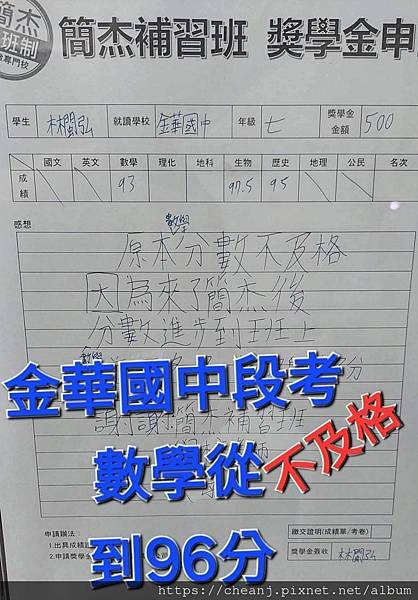 簡杰
班制
簡杰補習班 獎學金申
學生 林閩弘 就讀學校 金華國中 年級 七 獎學金金額 500
國文 英文 數學 理化 地科 生物 歷史 地理 公民 名次
成績 93 97.5 95
感想
數學
原本分數不及格
因為來了簡杰後
分數進步到班上
數學
分
金華國中段考
謝謝簡杰補習班
數學從不及格
到96分
申請辦法：
1.出具成績
2.申請獎學金
繳交證明(成績單/考卷)
獎學金簽收 林閩弘
https://cheanj.pixnet.net/album